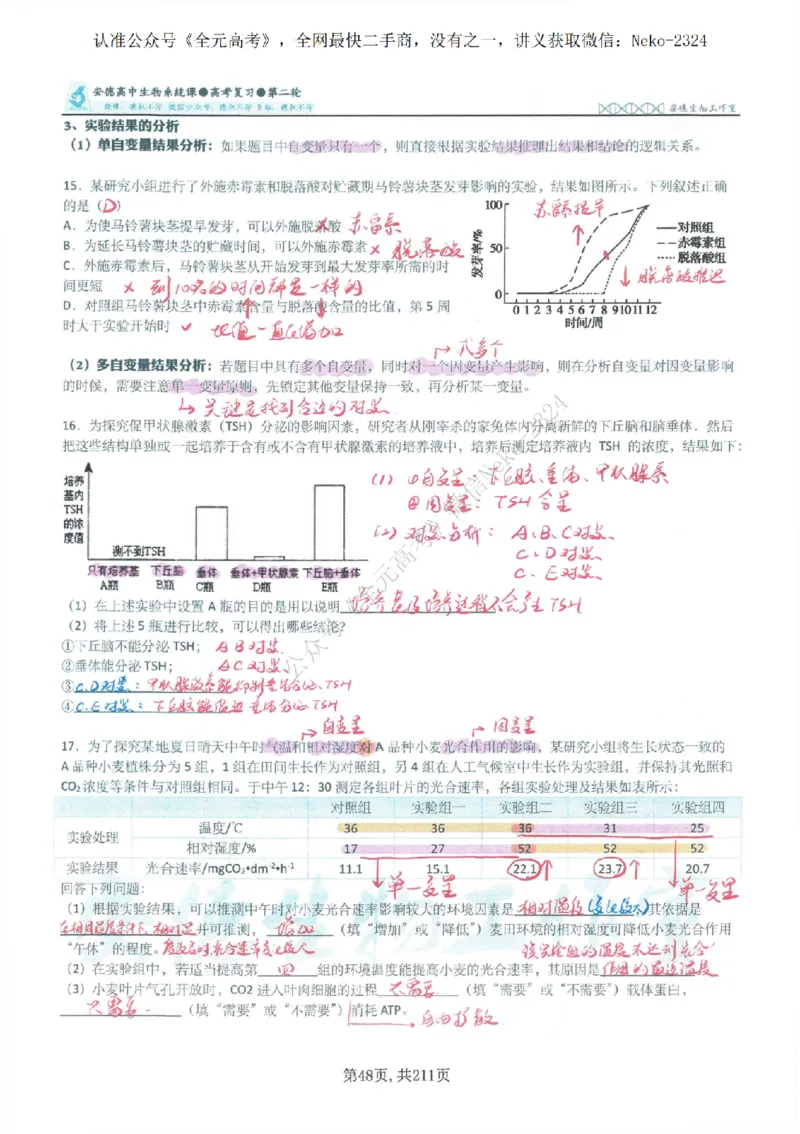 认准公众号《全元高考》，全网最快二手商，没有之一，讲义获取微信：Neko-2324
安德高中生物系统课●高考复习●第二轮
安德生物工作室
3、实验结果的分析
（1）单自变量结果分析：如果题目中自变量只有一个，则直接根据实验结果推理出结果和结论的逻辑关系。
15．某研究小组进行了外施赤霉素和脱落酸对贮藏期马铃薯块茎发芽影响的实验，结果如图所示。下列叙述正确
的是（D）
A．为使马铃薯块茎提早发芽，可以外施脱落酸 赤霉素
B．为延长马铃薯块茎的贮藏时间，可以外施赤霉素 × 脱落酸
C．外施赤霉素后，马铃薯块茎从开始发芽到最大发芽率所需的时
间更短 × 到100%的时间都是一样的
D．对照组马铃薯块茎中赤霉素含量与脱落酸含量的比值，第 5 周
时大于实验开始时 ✓ 比值一直在增加
赤霉提早
脱落酸推迟
发芽率/%
100
50
0
0 1 2 3 4 5 6 7 8 9 10 11 12
时间/周
对照组
赤霉素组
脱落酸组
或多个
（2）多自变量结果分析：若题目中具有多个自变量，同时对一个因变量产生影响，则在分析自变量对因变量影响
的时候，需要注意单一变量原则，先锁定其他变量保持一致，再分析某一变量。
关键是找到合适的对照
16．为探究促甲状腺激素（TSH）分泌的影响因素，研究者从刚宰杀的家兔体内分离新鲜的下丘脑和脑垂体．然后
把这些结构单独或一起培养于含有或不含有甲状腺激素的培养液中，培养后测定培养液内 TSH 的浓度，结果如下：
培养
基内
TSH
的浓
度值
测不到TSH
只有培养基 下丘脑 垂体 垂体+甲状腺素 下丘脑+垂体
A瓶 B瓶 C瓶 D瓶 E瓶
(1) ①自变量 下丘脑、垂体、甲状腺素
②因变量：TSH含量
(2) 对照分析：A、B、C对照、
C、D对照、
C、E对照、
（1）在上述实验中设置 A 瓶的目的是用以说明 培养基及培养过程不会产生TSH
（2）将上述 5 瓶进行比较，可以得出哪些结论？
①下丘脑不能分泌 TSH； AB对照
②垂体能分泌 TSH； AC对照
③C、D对照：甲状腺激素能抑制垂体分泌TSH
④C、E对照：下丘脑能促进垂体分泌TSH
自变量
因变量
17．为了探究某地夏日晴天中午时气温和相对湿度对 A 品种小麦光合作用的影响，某研究小组将生长状态一致的
A 品种小麦植株分为 5 组，1 组在田间生长作为对照组，另 4 组在人工气候室中生长作为实验组，并保持其光照和
CO₂浓度等条件与对照组相同。于中午 12：30 测定各组叶片的光合速率，各组实验处理及结果如表所示：
对照组 实验组一 实验组二 实验组三 实验组四
实验处理
温度/℃ 36 36 36 31 25
相对湿度/% 17 27 52 52 52
实验结果 光合速率/mgCO₂•dm⁻²•h⁻¹ 11.1 15.1 22.1 23.7 20.7
单一变量
单一变量
回答下列问题：
（1）根据实验结果，可以推测中午时对小麦光合速率影响较大的环境因素是 相对湿度(变化较大)其依据是
在相同温度条件下，相对湿度并可推测，增加（填“增加”或“降低”）麦田环境的相对湿度可降低小麦光合作用
“午休”的程度。
该实验组的温度未达到光合
（2）在实验组中，若适当提高第 四 组的环境温度能提高小麦的光合速率，其原因是作用的最适温度
（3）小麦叶片气孔开放时，CO2 进入叶肉细胞的过程 不需要（填“需要”或“不需要”）载体蛋白，
不需要（填“需要”或“不需要”）消耗 ATP。 自由扩散
第48页,共211页